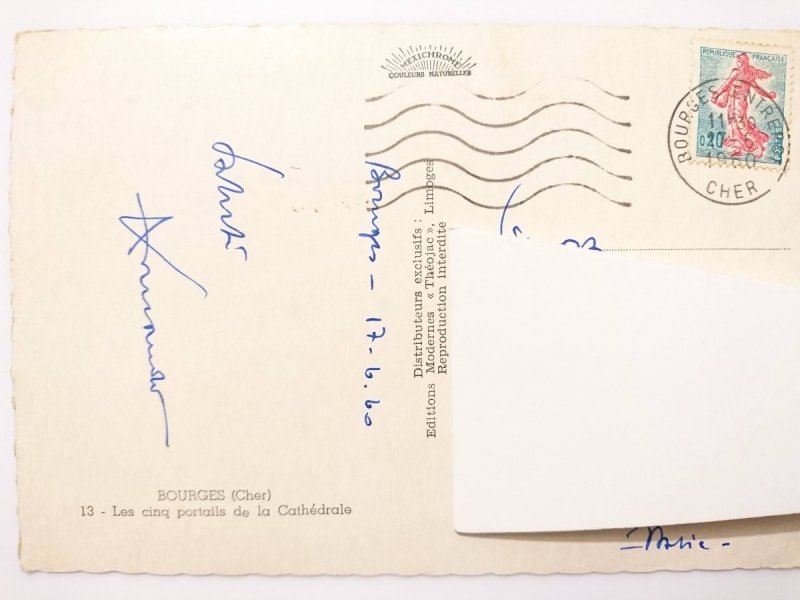 MEXICHROME
COULEURS NATURELLES
REPUBLIQUE FRANÇAISE
0,20
POSTES
BOURGES CENTRE
1960
CHER
Saluti
Bourges - 17.6.60
Distributeurs exclusifs :
Editions Modernes « Théojac », Limoges
Reproduction interdite
BOURGES (Cher)
13 - Les cinq portails de la Cathédrale
- Italia -